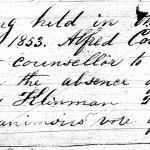 ng held in
1853. Alfred Co
counsellor to
the absence
Hinman
animous vote of